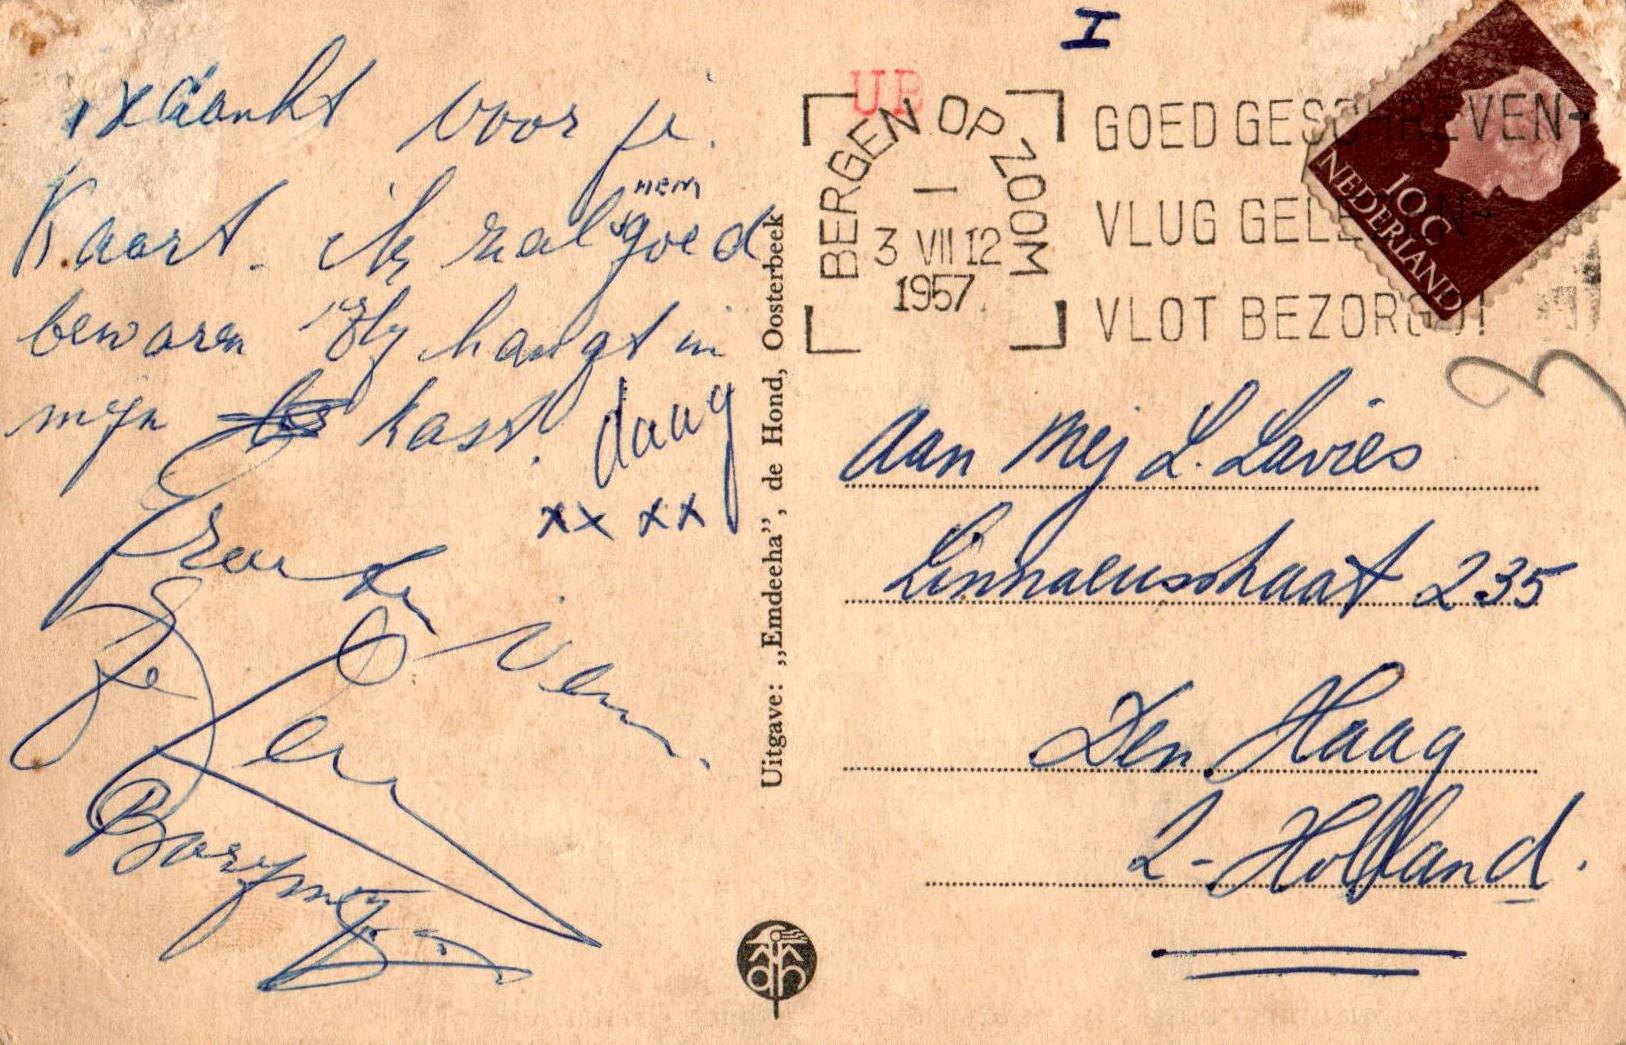 I
1x dankt voor je.
Kaart. ik zal hem goed
bewaren Hy hangt in
mijn kast. daag
xx xx
Groeten
van
UB
BERGEN OP ZOOM
3 VII 12
1957
GOED GESCHREVEN-
VLUG GELEZEN-
VLOT BEZORGD!
10 C
NEDERLAND
3
Aan Mej L. Lavies
Linnaeusstraat 235
Den Haag
Z-Holland.
Uitgave: „Emdeeha”, de Hond, Oosterbeek